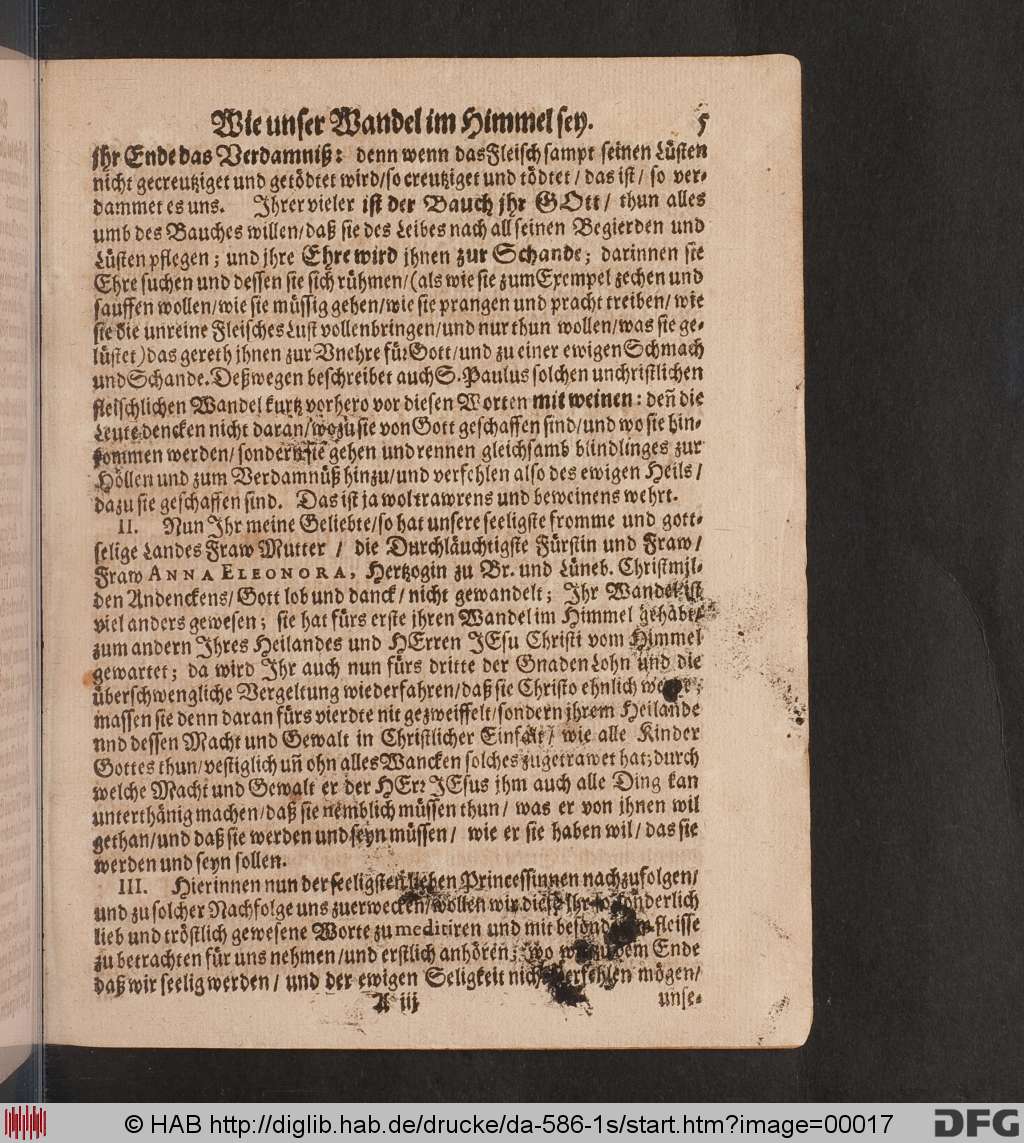 Wie unser Wandel im Himmel sey. 5
jhr Ende das Verdamniß: denn wenn das Fleisch sampt seinen Lüsten
nicht gecreutziget und getödtet wird/so creutziget und tödtet / das ist/ so ver-
dammet es uns. Ihrer vieler ist der Bauch jhr GOtt/ thun alles
umb des Bauches willen/daß sie des Leibes nach all seinen Begierden und
Lüsten pflegen; und jhre Ehre wird jhnen zur Schande; darinnen sie
Ehre suchen und dessen sie sich rühmen/(als wie sie zum Exempel zechen und
sauffen wollen/wie sie müssig gehen/wie sie prangen und pracht treiben/wie
sie die unreine Fleisches Lust vollenbringen/und nur thun wollen/was sie ge-
lüstet)das gereth jhnen zur Vnehre für Gott/und zu einer ewigen Schmach
und Schande. Deßwegen beschreibet auch S. Paulus solchen unchristlichen
fleischlichen Wandel kurtz vorhero vor diesen Worten mit weinen: deñ die
Leute dencken nicht daran/wozu sie von Gott geschaffen sind/und wo sie hin-
kommen werden/sondern sie gehen und rennen gleichsamb blindlinges zur
Höllen und zum Verdamnüß hinzu/und verfehlen also des ewigen Heils/
dazu sie geschaffen sind. Das ist ja wol trawrens und beweinens wehrt.
II. Nun Ihr meine Geliebte/so hat unsere seeligste fromme und gott-
selige Landes Fraw Mutter / die Durchläuchtigste Fürstin und Fraw/
Fraw ANNA ELEONORA, Hertzogin zu Br. und Lüneb. Christmil-
den Andenckens/Gott lob und danck/nicht gewandelt; Ihr Wandel ist
viel anders gewesen; sie hat fürs erste jhren Wandel im Himmel gehabt/
zum andern Ihres Heilandes und HErren JEsu Christi vom Himmel
gewartet; da wird Ihr auch nun fürs dritte der Gnaden Lohn und die
überschwengliche Vergeltung wiederfahren/daß sie Christo ehnlich
massen sie denn daran fürs vierdte nit gezweiffelt/sondern jhrem Heilande
und dessen Macht und Gewalt in Christlicher Einfalt/ wie alle Kinder
Gottes thun/vestiglich uñ ohn alles Wancken solches zugetrawet hat; durch
welche Macht und Gewalt er der HErr JEsus jhm auch alle Ding kan
unterthänig machen/daß sie nemblich müssen thun/ was er von jhnen wil
gethan/und daß sie werden und seyn müssen/ wie er sie haben wil/das sie
werden und seyn sollen.
III. Hierinnen nun der seeligsten lieben Princessinnen nachzufolgen/
und zu solcher Nachfolge uns zuerwecken/wollen wir diese Ihr sonderlich
lieb und tröstlich gewesene Worte zu meditiren und mit fleisse
zu betrachten für uns nehmen/und erstlich anhören; wo Ende
daß wir seelig werden/ und der ewigen Seligkeit nicht verfehlen mögen/
A iij unse-
© HAB http://diglib.hab.de/drucke/da-586-1s/start.htm?image=00017
DFG